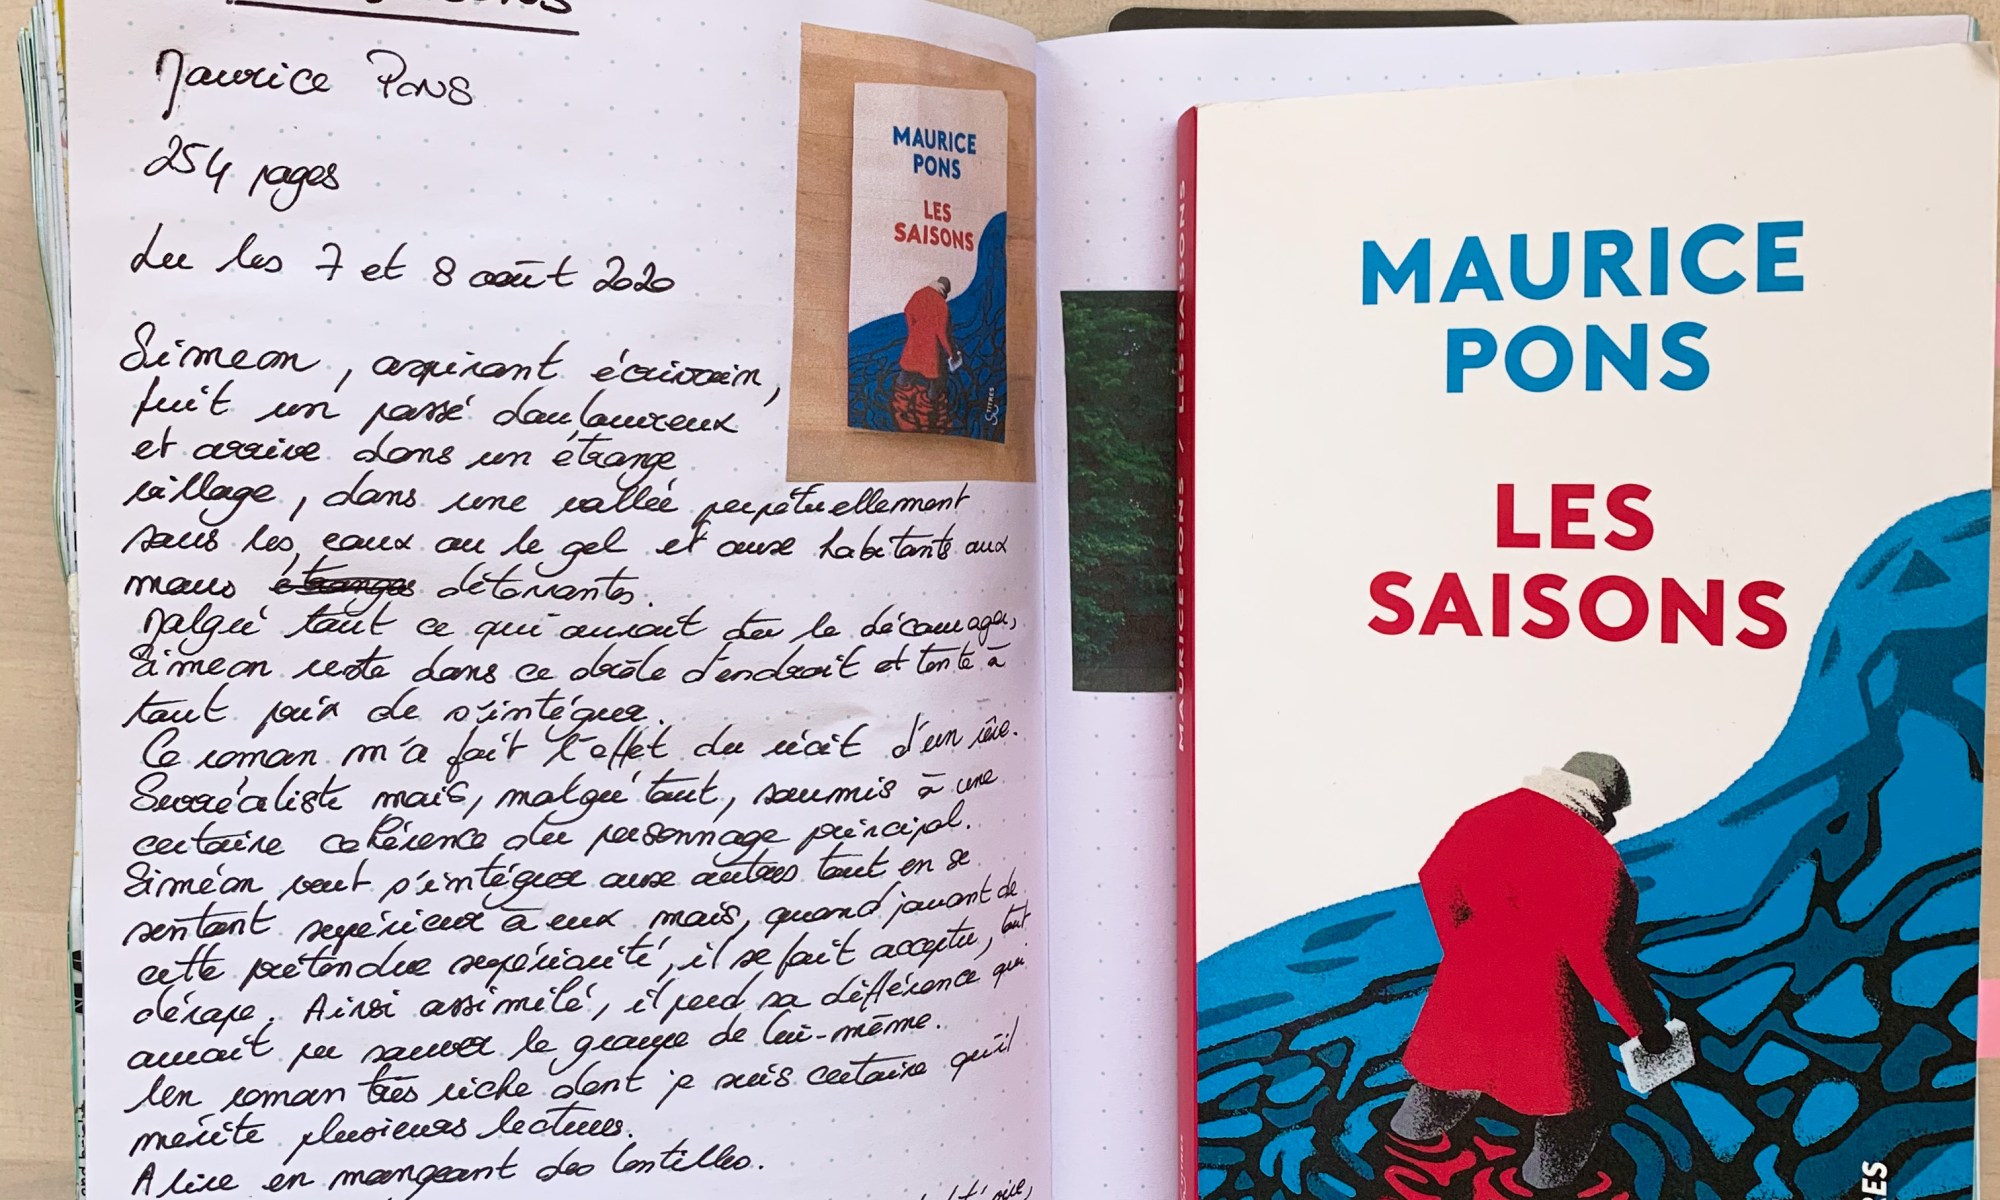 Maurice PONS
254 pages
Lu les 7 et 8 août 2020
Siméon, aspirant écrivain,
fuit un passé douloureux
et arrive dans un étrange
village, dans une vallée perpétuellement
sous les eaux ou le gel et aux habitants aux
mœurs étranges détonantes.
Malgré tout ce qui aurait du le décourager,
Siméon reste dans ce drôle d'endroit et tente à
tout prix de s'intégrer.
Ce roman m'a fait l'effet du récit d'un rêve.
Surréaliste mais, malgré tout, soumis à une
certaine cohérence du personnage principal.
Siméon veut s'intégrer aux autres tout en se
sentant supérieur à eux mais, quand jouant de
cette prétendue supériorité, il se fait accepter, tout
dérape. Ainsi assimilé, il perd sa différence qui
aurait pu sauver le groupe de lui-même.
Un roman très riche dont je suis certaine qu'il
mérite plusieurs lectures.
A lire en mangeant des lentilles.
MAURICE
PONS
LES
SAISONS
TITRES
MAURICE PONS / LES SAISONS
MAURICE
PONS
LES
SAISONS